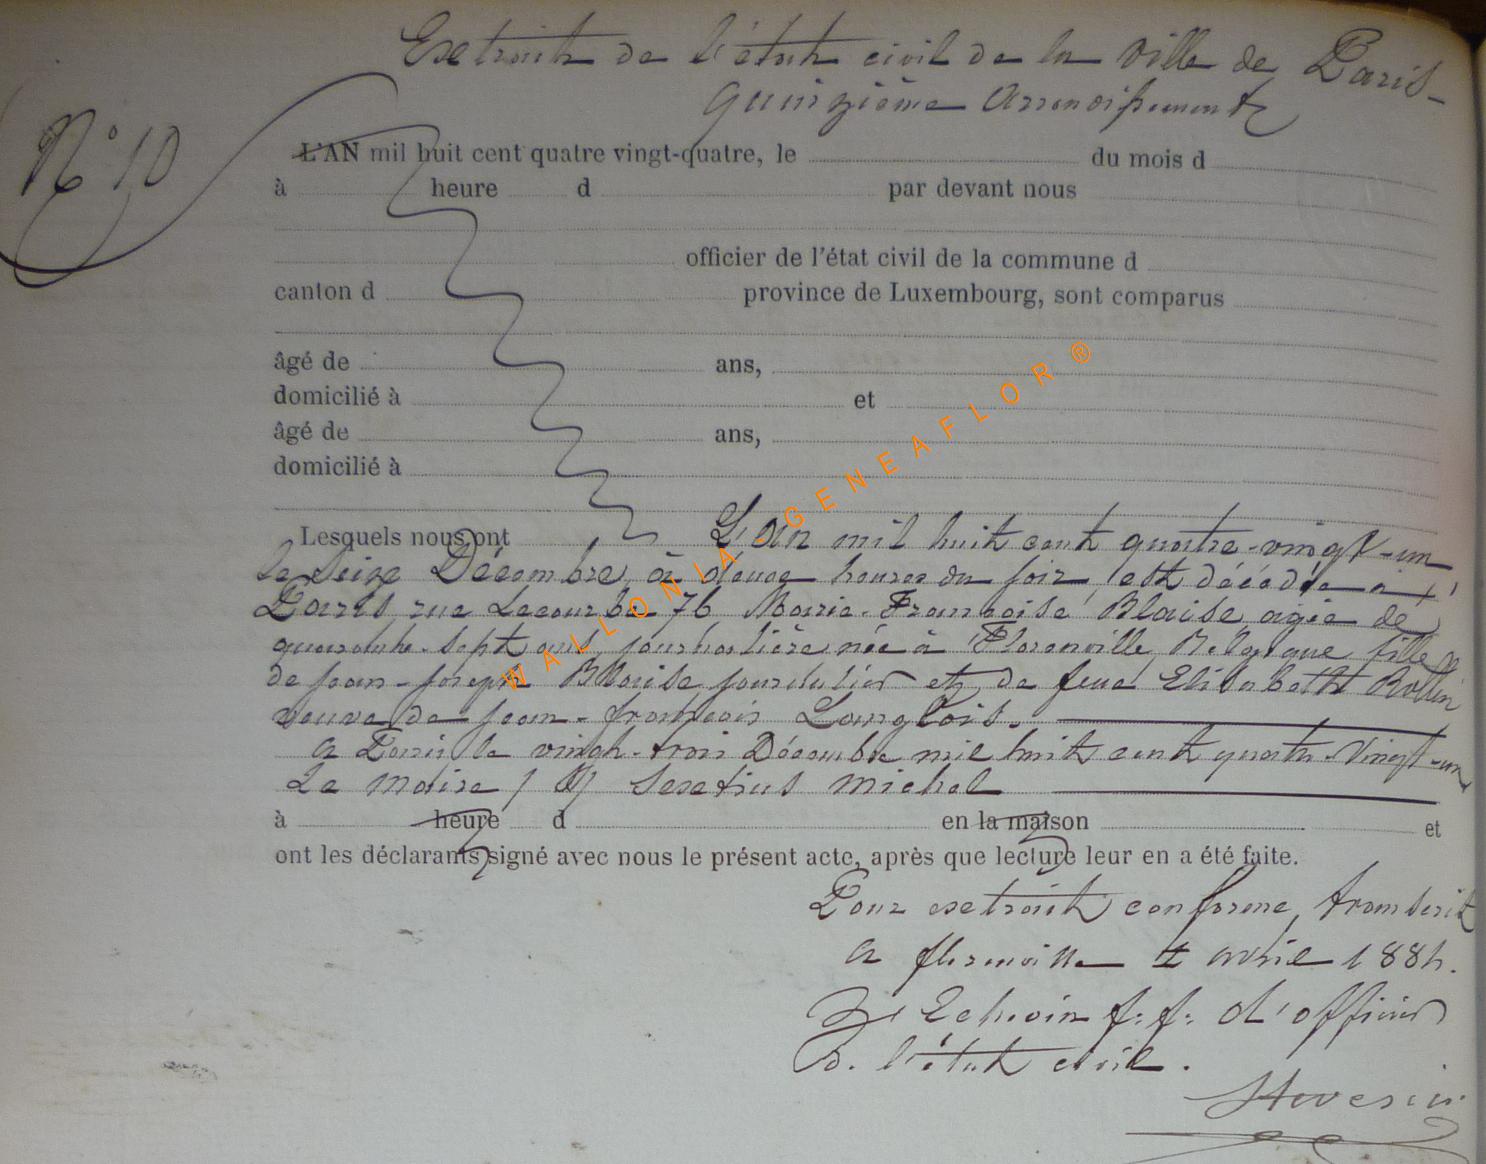 Extrait de l'état civil de la ville de Paris -
quinzième arrondissement
N° 10
L'AN mil huit cent quatre vingt-quatre, le du mois d
à heure d par devant nous
officier de l'état civil de la commune d
canton d province de Luxembourg, sont comparus
âgé de ans,
domicilié à et
âgé de ans,
domicilié à
Lesquels nous ont L'an mil huit cent quatre-vingt-un
le seize Décembre, à douze heures du soir, est décédée à
Paris, rue Lecourbe 76 Marie-Françoise Blaise, agée de
quarante-sept ans, journalière née à Florenville, Belgique, fille
de Jean-Joseph Blaise journalier et de feue Elisabeth Rollin
veuve de jean-francois Langlois.
a Paris le vingt-trois Décembre mil huit cent quatre-vingt-un
Le maire, Sextius Michel
à heure d en la maison et
ont les déclarants signé avec nous le présent acte, après que lecture leur en a été faite.
Pour extrait conforme, transcrit
a florenville avril 1884.
L'Echevin f.f. d'officier
d. l'état civil.
WALLONIA - GENEAFLOR ®